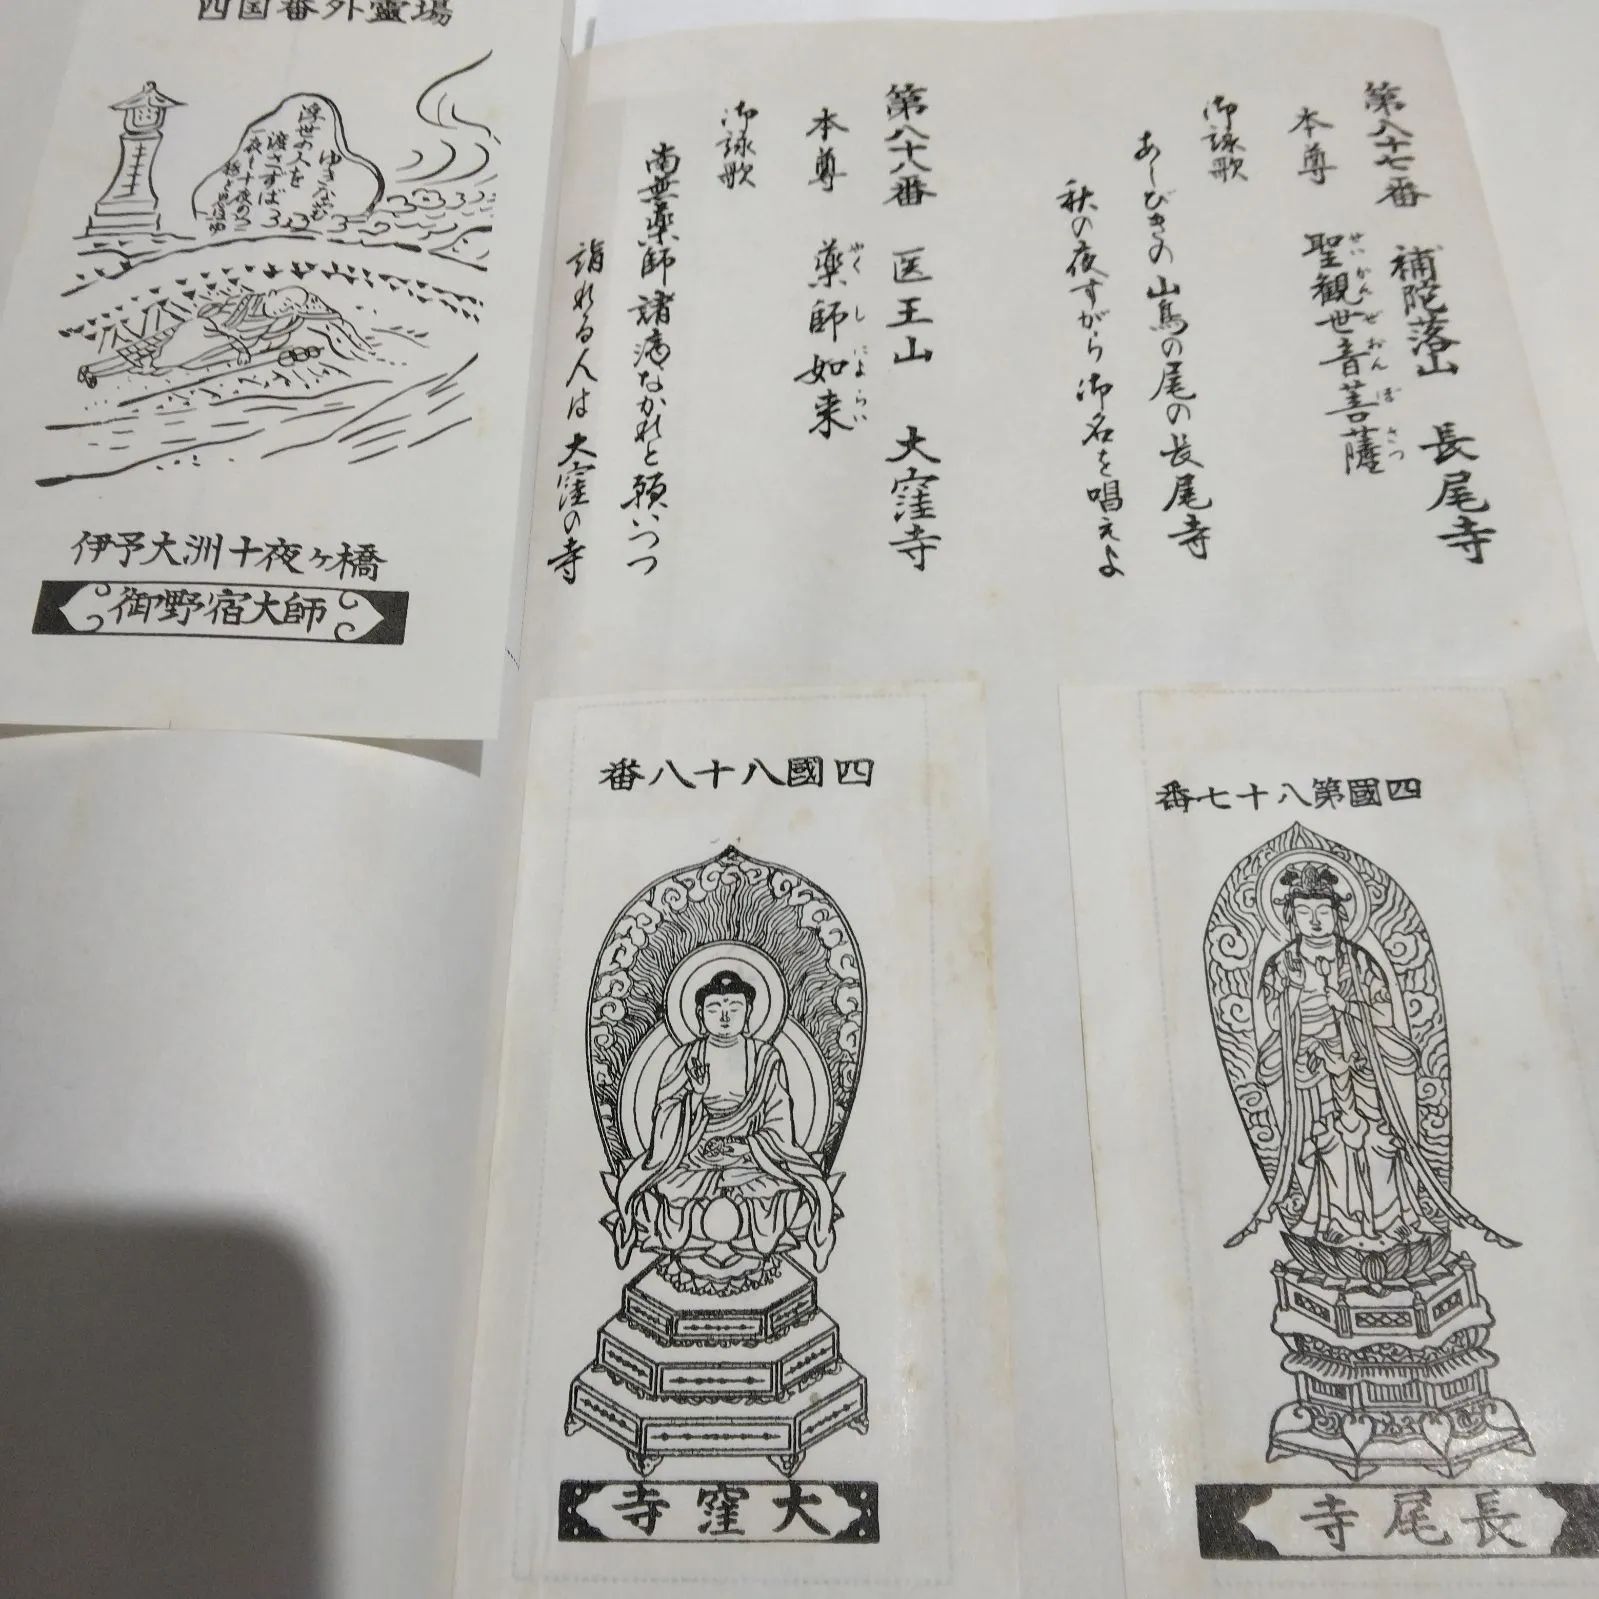 四国番外靈場
ゆきなやむ
浮世の人を
渡さずば
一夜も十夜の
橋と思ほゆ
伊予大洲十夜ヶ橋
御野宿大師
第八十七番 補陀落山 長尾寺
本尊 聖観世音菩薩
せいかんぜおんぼさつ
御詠歌
あしびきの山鳥の尾の長尾寺
秋の夜すがら御名を唱えよ
第八十八番 医王山 大窪寺
本尊 薬師如来
やくしにょらい
御詠歌
南無薬師諸病なかれと願いつつ
詣れる人は大窪の寺
四國第八十七番
長尾寺
四國八十八番
大窪寺